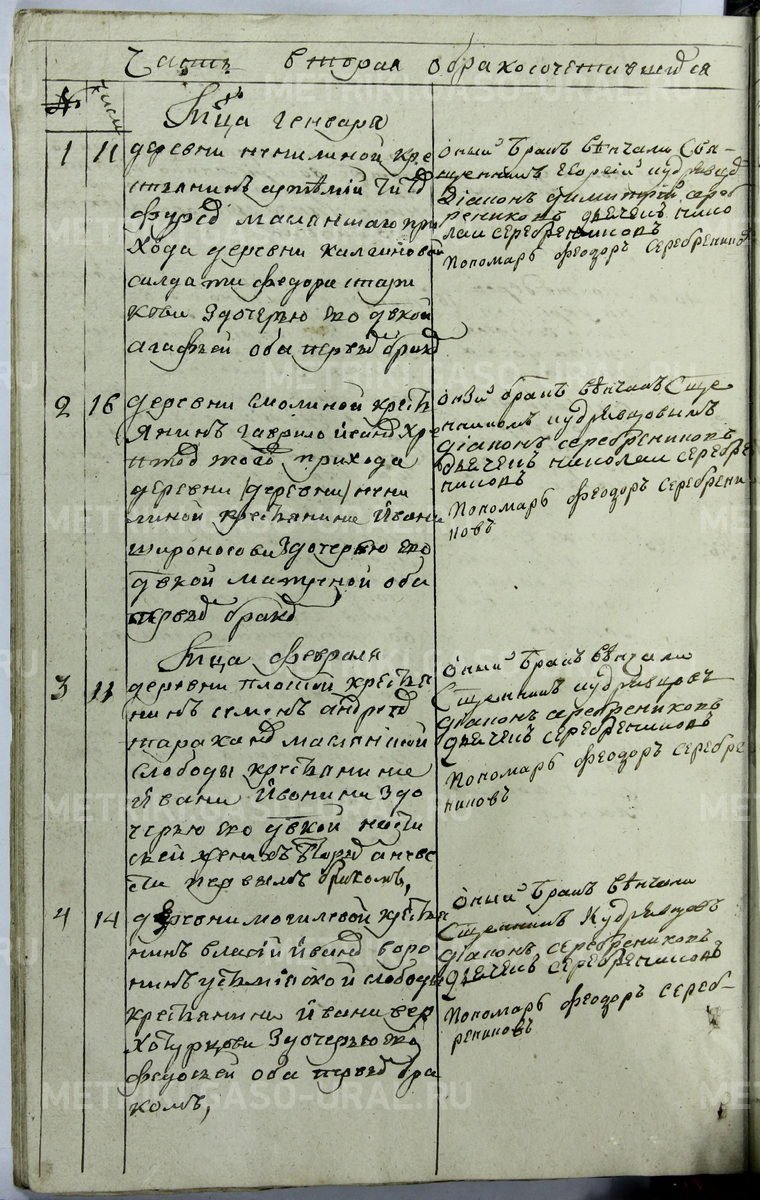 Часть вторая о бракосочетавшихся
№ число
Мца генваря
1 11 деревни ненилиной кре
стьянинъ артѣмiй
прихода деревни калашновой
салдата федора
здочерью ево дѣвкой
агафьей оба первыд бракд
оный бракъ вѣнчали Свя-
щенникъ георгiй кудрявцд
Дiаконъ димитрiй среб
рениковъ дьячекъ нико
лаи серебрениковъ
Пономарь феодоръ серебрениковд
2 16 деревни смолиной крестья
янинъ гаврило iванд
тогд прихода
деревни /деревни/ нени
линой крестьянина Ивана
широносова здочерью ево
дѣвкой матреной оба
первыд бракд
оный бракъ вѣнчалъ Сще
нникъ кудрявцовымъ
дiаконъ серебрениковъ
дьячекъ николаи серебре
никовъ
Пономарь феодоръ серебрени
ковъ
Мца февраля
3 11 деревни плоской крестья
нинъ семенъ андреед
слободы крестьянина
Ивана здо
черью ево дѣвкой наста
сьей женихъ вторыд аневе
ста первымъ бракомъ,
оный бракъ вѣнчали
Сщенникъ кудрявцовъ
дiаконъ серебрениковъ
дьячекъ серебрениковъ
Пономарь феодоръ серебре
никовъ
4 14 деревни могилевой крестья
нинъ власiй iванд воро
нинъ слободы
крестьянина Ивана вер
хотурцова здочерью ево
федосьей оба первыд бра
комъ,
оный бракъ вѣнчали
Сщенникъ Кудрявцовъ
дiаконъ серебрениковъ
дьячекъ серебрениковъ
Пономарь феодоръ сереб-
рениковъ
METRIKI.GASO-URAL.RU